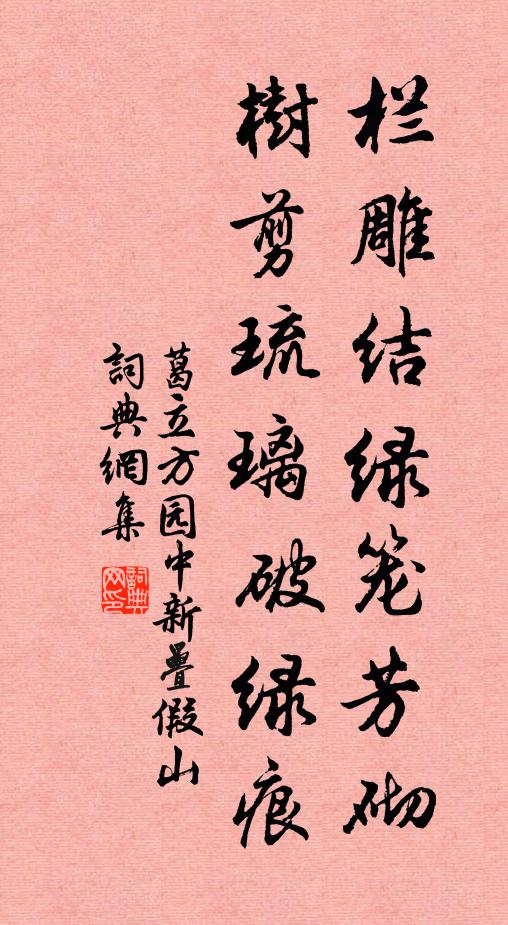 栏雕结绿笼芳砌
樹剪琉璃破绿痕
葛立方园中新疊假山
詞典網集
詞典网印